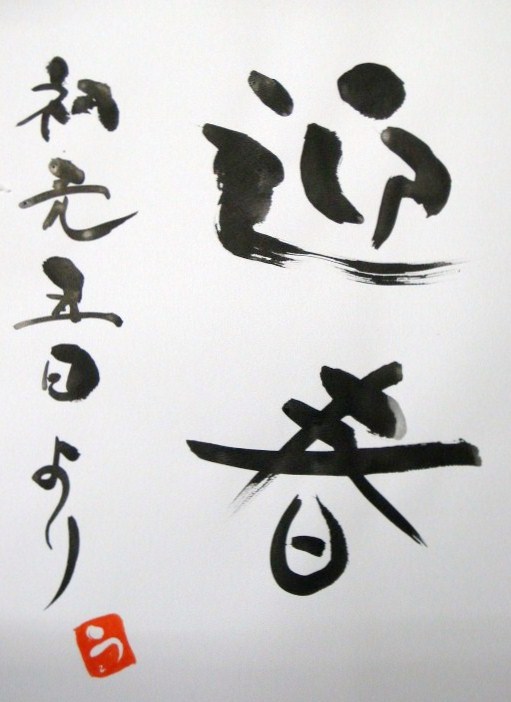 迎春
初売五日より
う